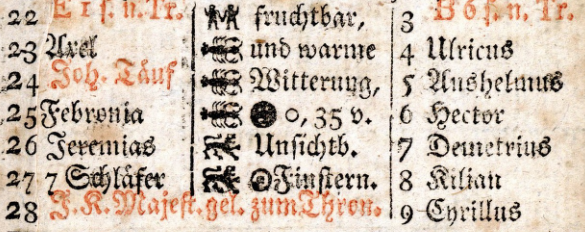 22 E 1 s. n. Tr. fruchtbar, 3 B 6 s. n. Tr.
23 Axel und warme 4 Ulricus
24 Joh. Täuf Witterung, 5 Anshelmus
25 Febronia 0, 35 v. 6 Hector
26 Jeremias Unsichtb. 7 Demetrius
27 7 Schläfer Finstern. 8 Kilian
28 J. K. Majest. gel. zum Thron. 9 Cyrillus